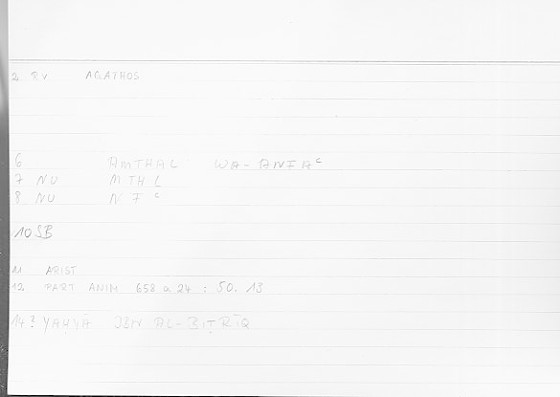 2 RV AGATHOS
6 AMTHAL WA-ANFAᶜ
7 NU MTHL
8 NU NFᶜ
10 SB
11 ARIST
12 PART ANIM 658 a 24 : 50. 13
14? YAḤYĀ IBN AL-BIṬRĪQ